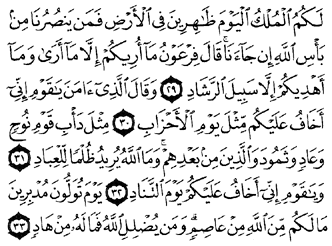 لَكُمُ ٱلْمُلْكُ ٱلْيَوْمَ ظَٰهِرِينَ فِى ٱلْأَرْضِ فَمَن يَنصُرُنَا مِنۢ
بَأْسِ ٱللَّهِ إِن جَآءَنَا ۚ قَالَ فِرْعَوْنُ مَآ أُرِيكُمْ إِلَّا مَآ أَرَىٰ وَمَآ
أَهْدِيكُمْ إِلَّا سَبِيلَ ٱلرَّشَادِ ٢٩ وَقَالَ ٱلَّذِىٓ ءَامَنَ يَٰقَوْمِ إِنِّىٓ
أَخَافُ عَلَيْكُم مِّثْلَ يَوْمِ ٱلْأَحْزَابِ ٣٠ مِثْلَ دَأْبِ قَوْمِ نُوحٍ
وَعَادٍ وَثَمُودَ وَٱلَّذِينَ مِنۢ بَعْدِهِمْ ۚ وَمَا ٱللَّهُ يُرِيدُ ظُلْمًا لِّلْعِبَادِ
٣١ وَيَٰقَوْمِ إِنِّىٓ أَخَافُ عَلَيْكُمْ يَوْمَ ٱلتَّنَادِ ٣٢ يَوْمَ تُوَلُّونَ مُدْبِرِينَ
مَا لَكُم مِّنَ ٱللَّهِ مِنْ عَاصِمٍ ۗ وَمَن يُضْلِلِ ٱللَّهُ فَمَا لَهُۥ مِنْ هَادٍ ٣٣